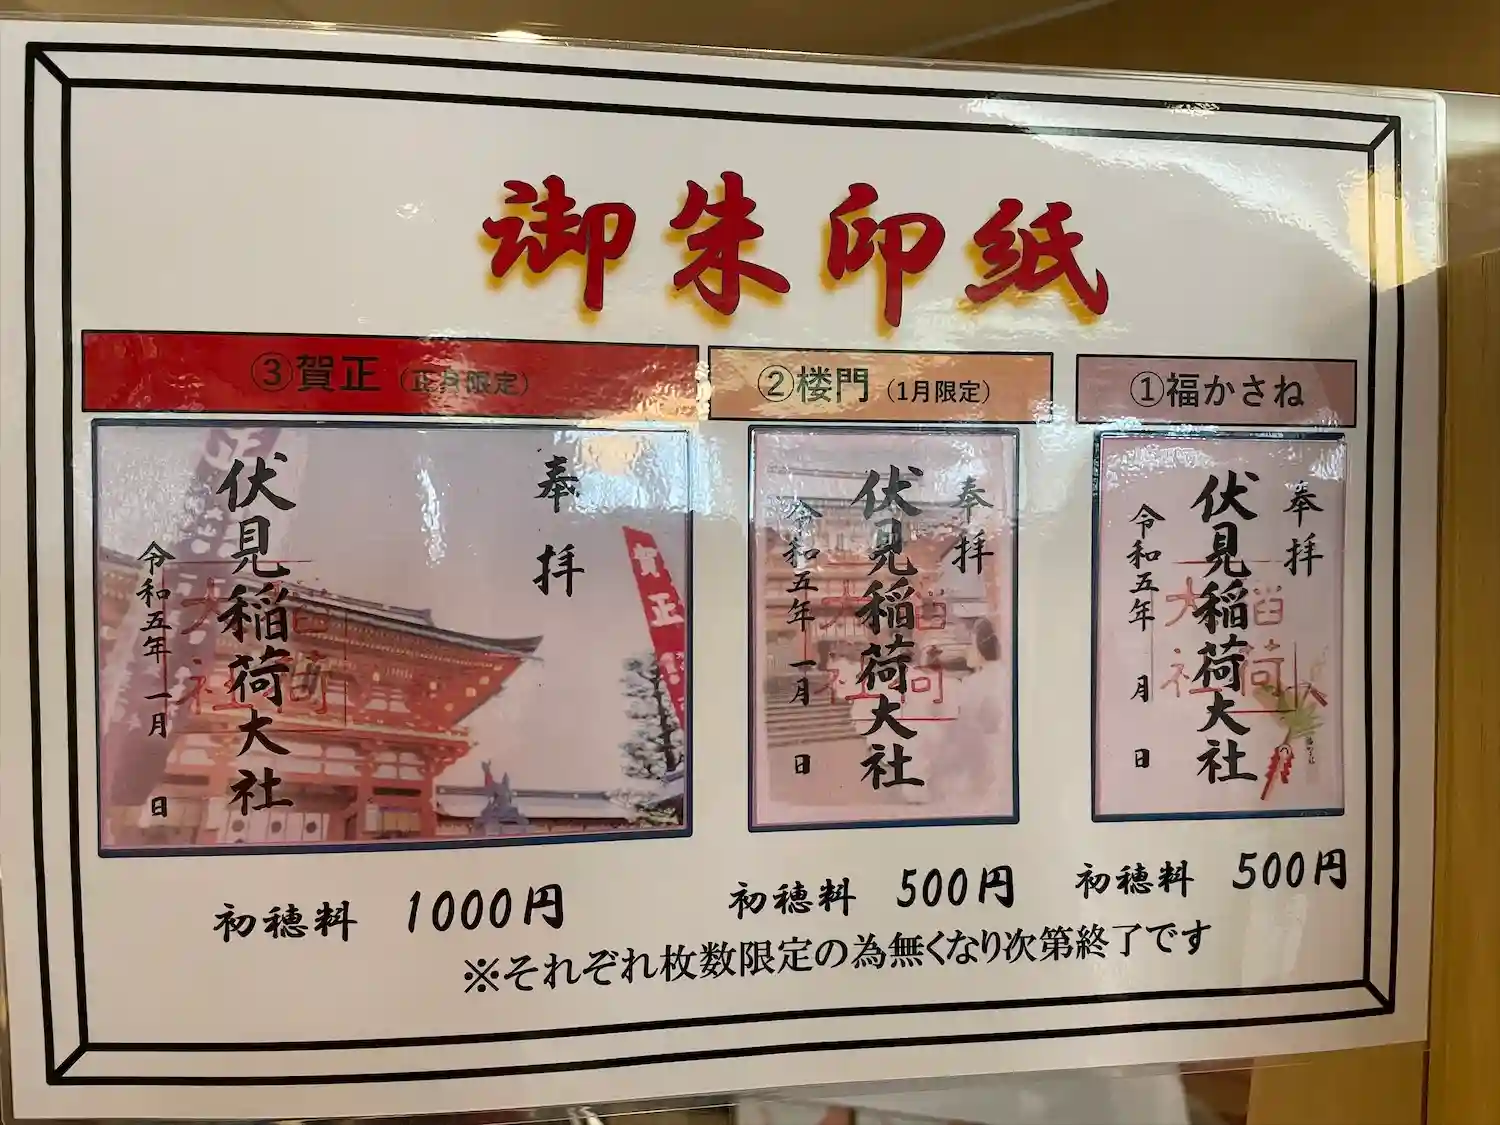 御朱印紙
①福かさね
奉拝
伏見稲荷大社
令和五年 月 日
初穂料 500円
②楼門（1月限定）
奉拝
伏見稲荷大社
令和五年 一月 日
初穂料 500円
③賀正（正月限定）
奉拝
伏見稲荷大社
令和五年 一月 日
賀正
初穂料 1000円
※それぞれ枚数限定の為無くなり次第終了です